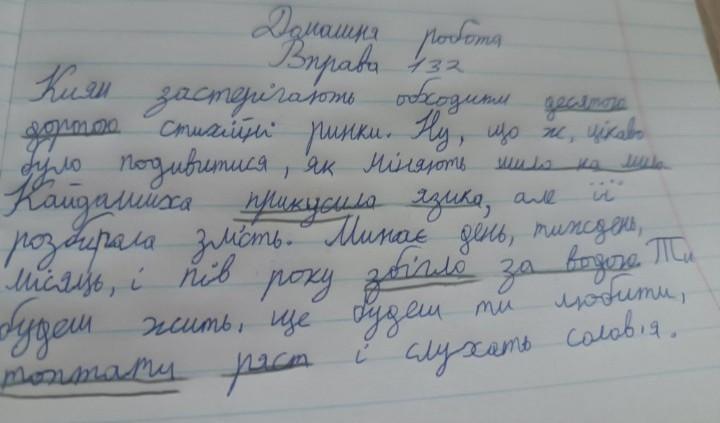 Домашня робота
Вправа 132
Киян застерігають обходити десятою
дорогою стихійні ринки. Ну, що ж, цікаво
було подивитися, як міняють шило на мило
Кайдашиха прикусила язика, але її
розбирала злість. Минає день, тиждень,
місяць, і пів року збігло за водою Ти
будеш жить, ще будеш ти любити,
топтати ряст і слухать солов'я.